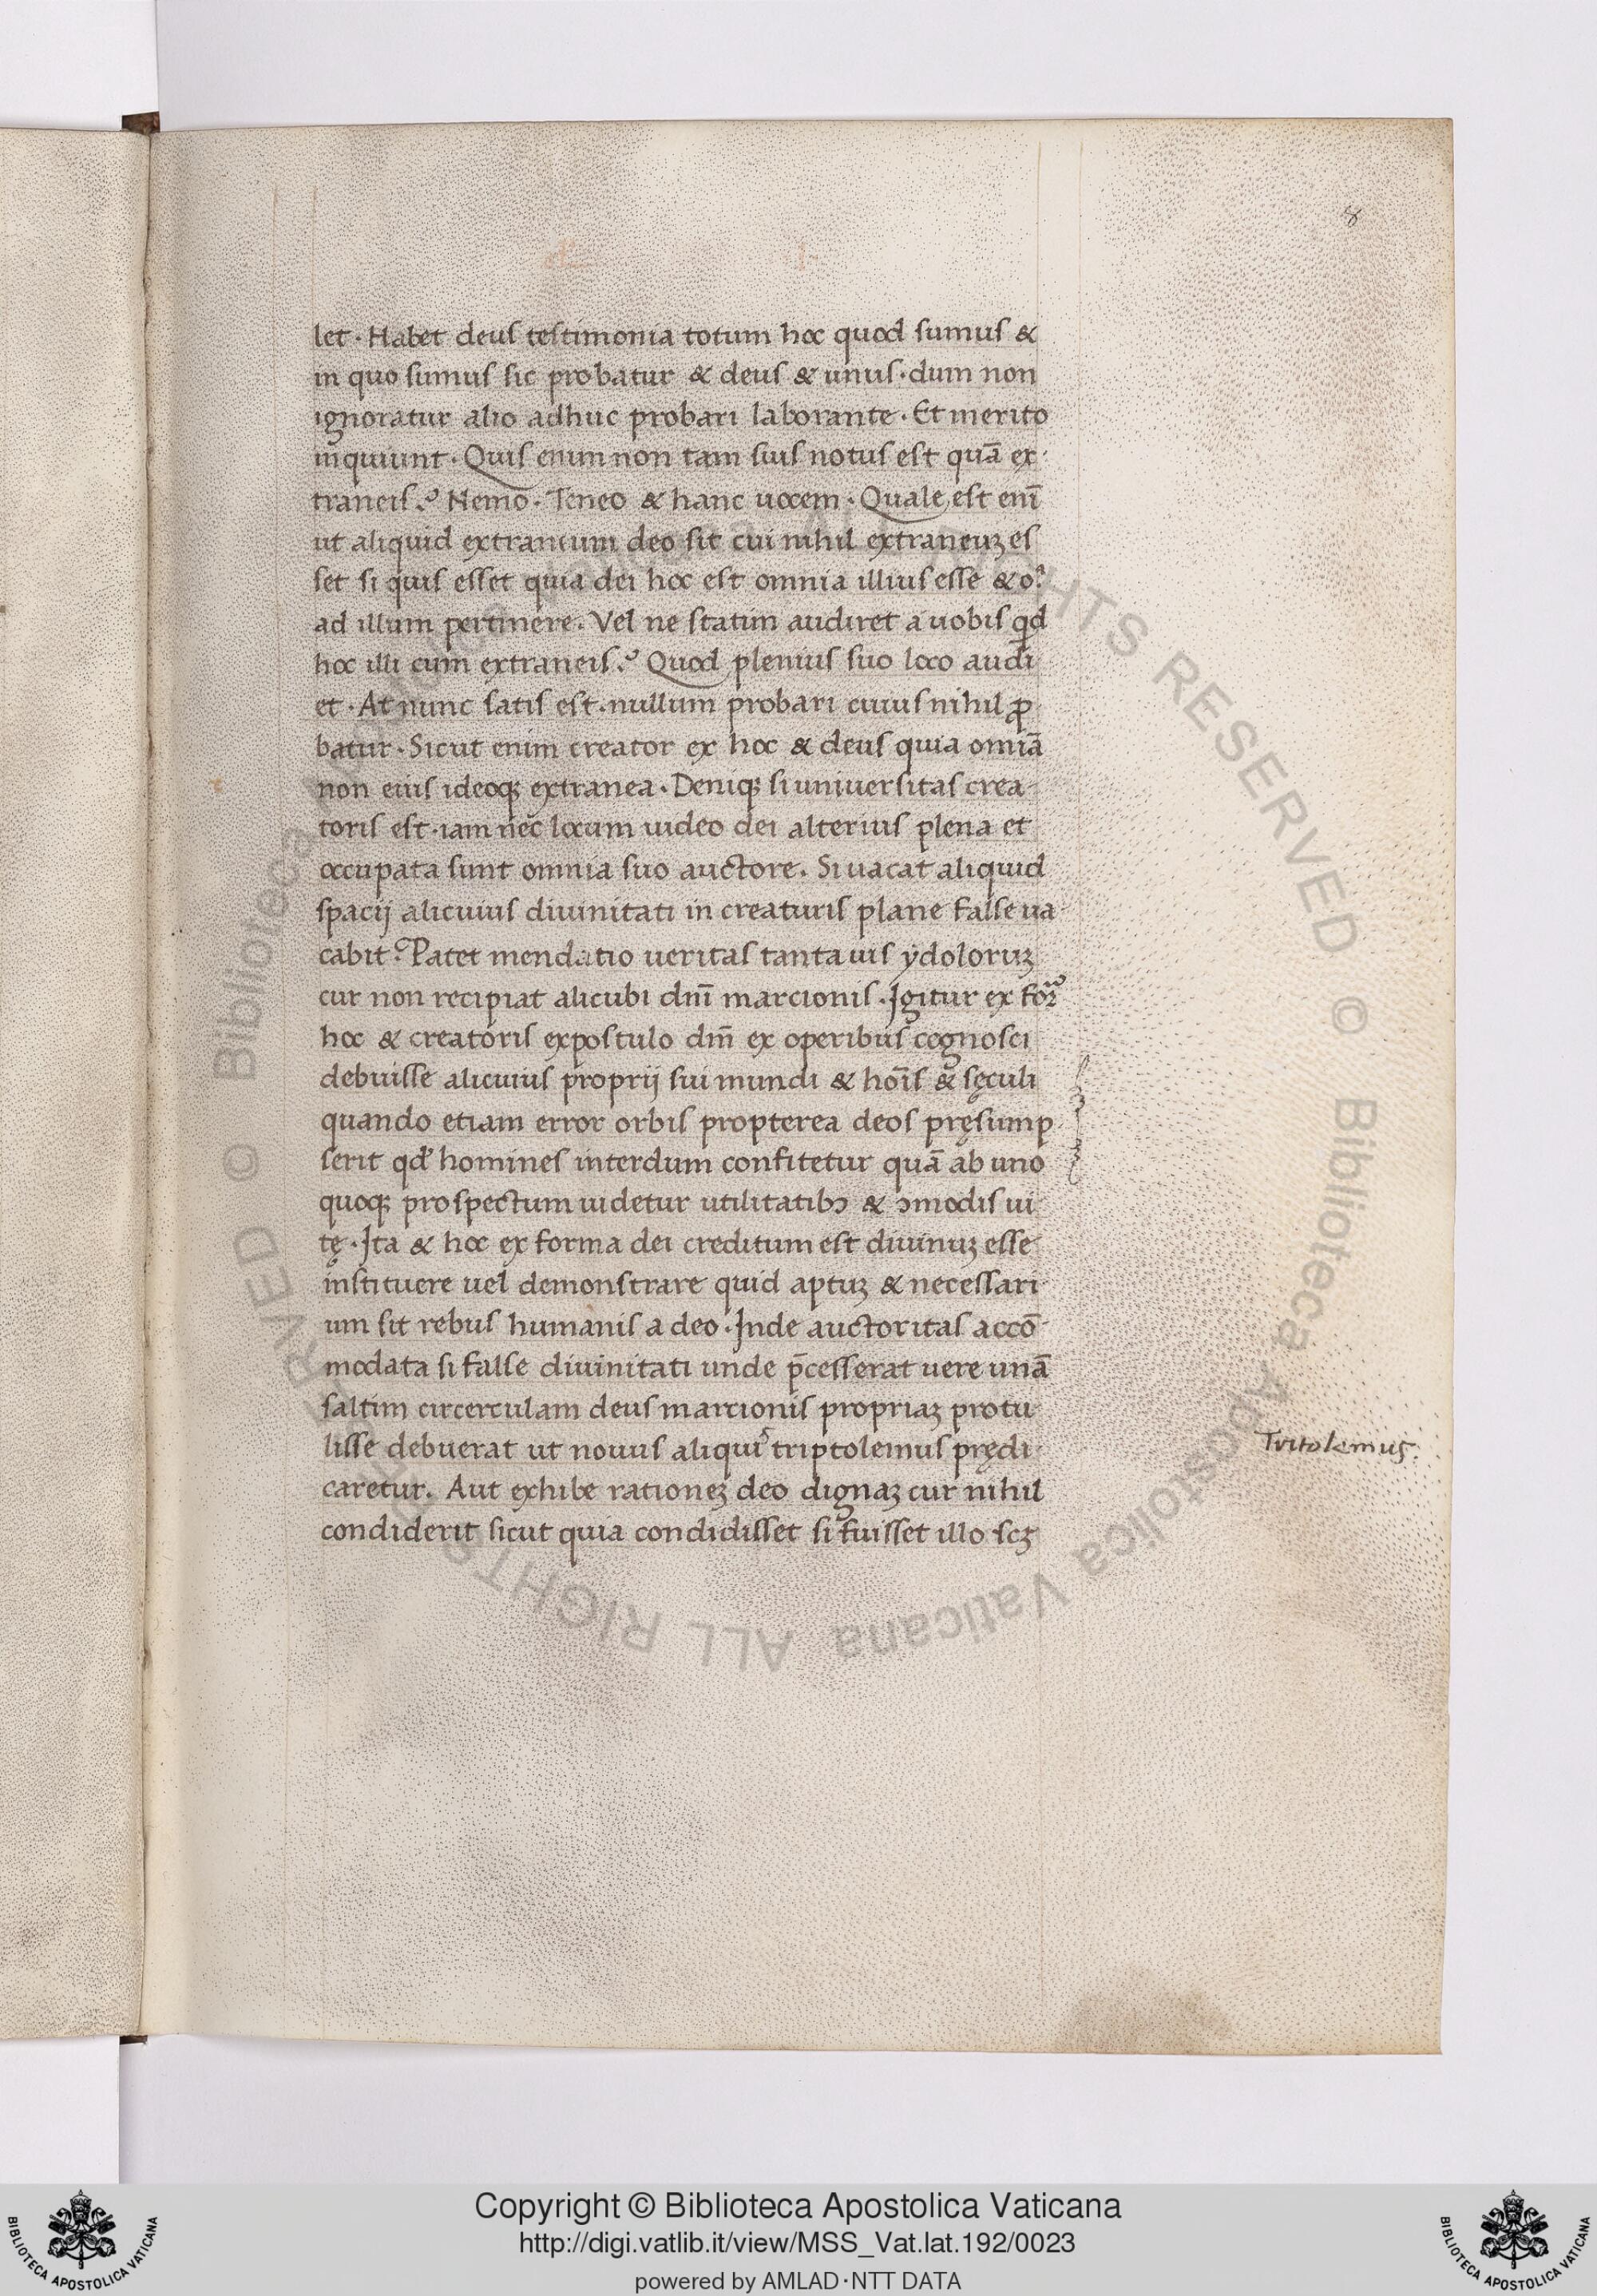 8
let · Habet deus testimonia totum hoc quod sumus &
in quo sumus sic probatur & deus & unus · dum non
ignoratur alio adhuc probari laborante · Et merito
inquiunt · Quis enim non tam suis notus est quā ex
traneis? Nemo · Teneo & hanc uocem · Quale est enī
ut aliquid extraneum deo sit cui nihil extraneuꝫ es
set si quis esset quia dei hoc est omnia illius esse & oᵃ
ad illum pertinere · Vel ne statim audiret a uobis qͥd
hoc illi cum extraneis? Quod plenius suo loco audi
et · At nunc satis est · nullum probari cuius nihil ꝓ
batur · Sicut enim creator ex hoc & deus quia omīa
non eius ideoqꝫ extranea · Deniqꝫ si uniuersitas crea
toris est · iam nec locum uideo dei alterius plena et
occupata sunt omnia suo auctore · Si uacat aliquid
spacij alicuius diuinitati in creaturis plane false ua
cabit? Patet mendatio ueritas tanta uis ydoloruꝫ
cur non recipiat alicubi dm̄ marcionis · Igitur ex forᵃ
hoc & creatoris expostulo dm̄ ex operibus cognosci
debuisse alicuius proprij sui mundi & hoīs & sęculi
quando etiam error orbis propterea deos pręsump
serit qđ homines interdum confitetur quā ab uno
quoqꝫ prospectum uidetur utilitatibꝫ & ꝯmodis ui
tę · Ita & hoc ex forma dei creditum est diuinuꝫ esse
instituere uel demonstrare quid aptuꝫ & necessari
um sit rebus humanis a deo · Inde auctoritas accō
modata si false diuinitati unde p̄cesserat uere unā
saltim circerculam deus marcionis propriaꝫ protu
lisse debuerat ut nouus aliquis triptolemus prędi
caretur. Aut exhibe rationeꝫ deo dignaꝫ cur nihil
condiderit sicut quia condidisset si fuisset illo scꝫ
Tritolemus.
© Biblioteca Apostolica Vaticana ALL RIGHTS RESERVED
Copyright © Biblioteca Apostolica Vaticana
http://digi.vatlib.it/view/MSS_Vat.lat.192/0023
powered by AMLAD·NTT DATA
BIBLIOTECA APOSTOLICA VATICANA
BIBLIOTECA APOSTOLICA VATICANA